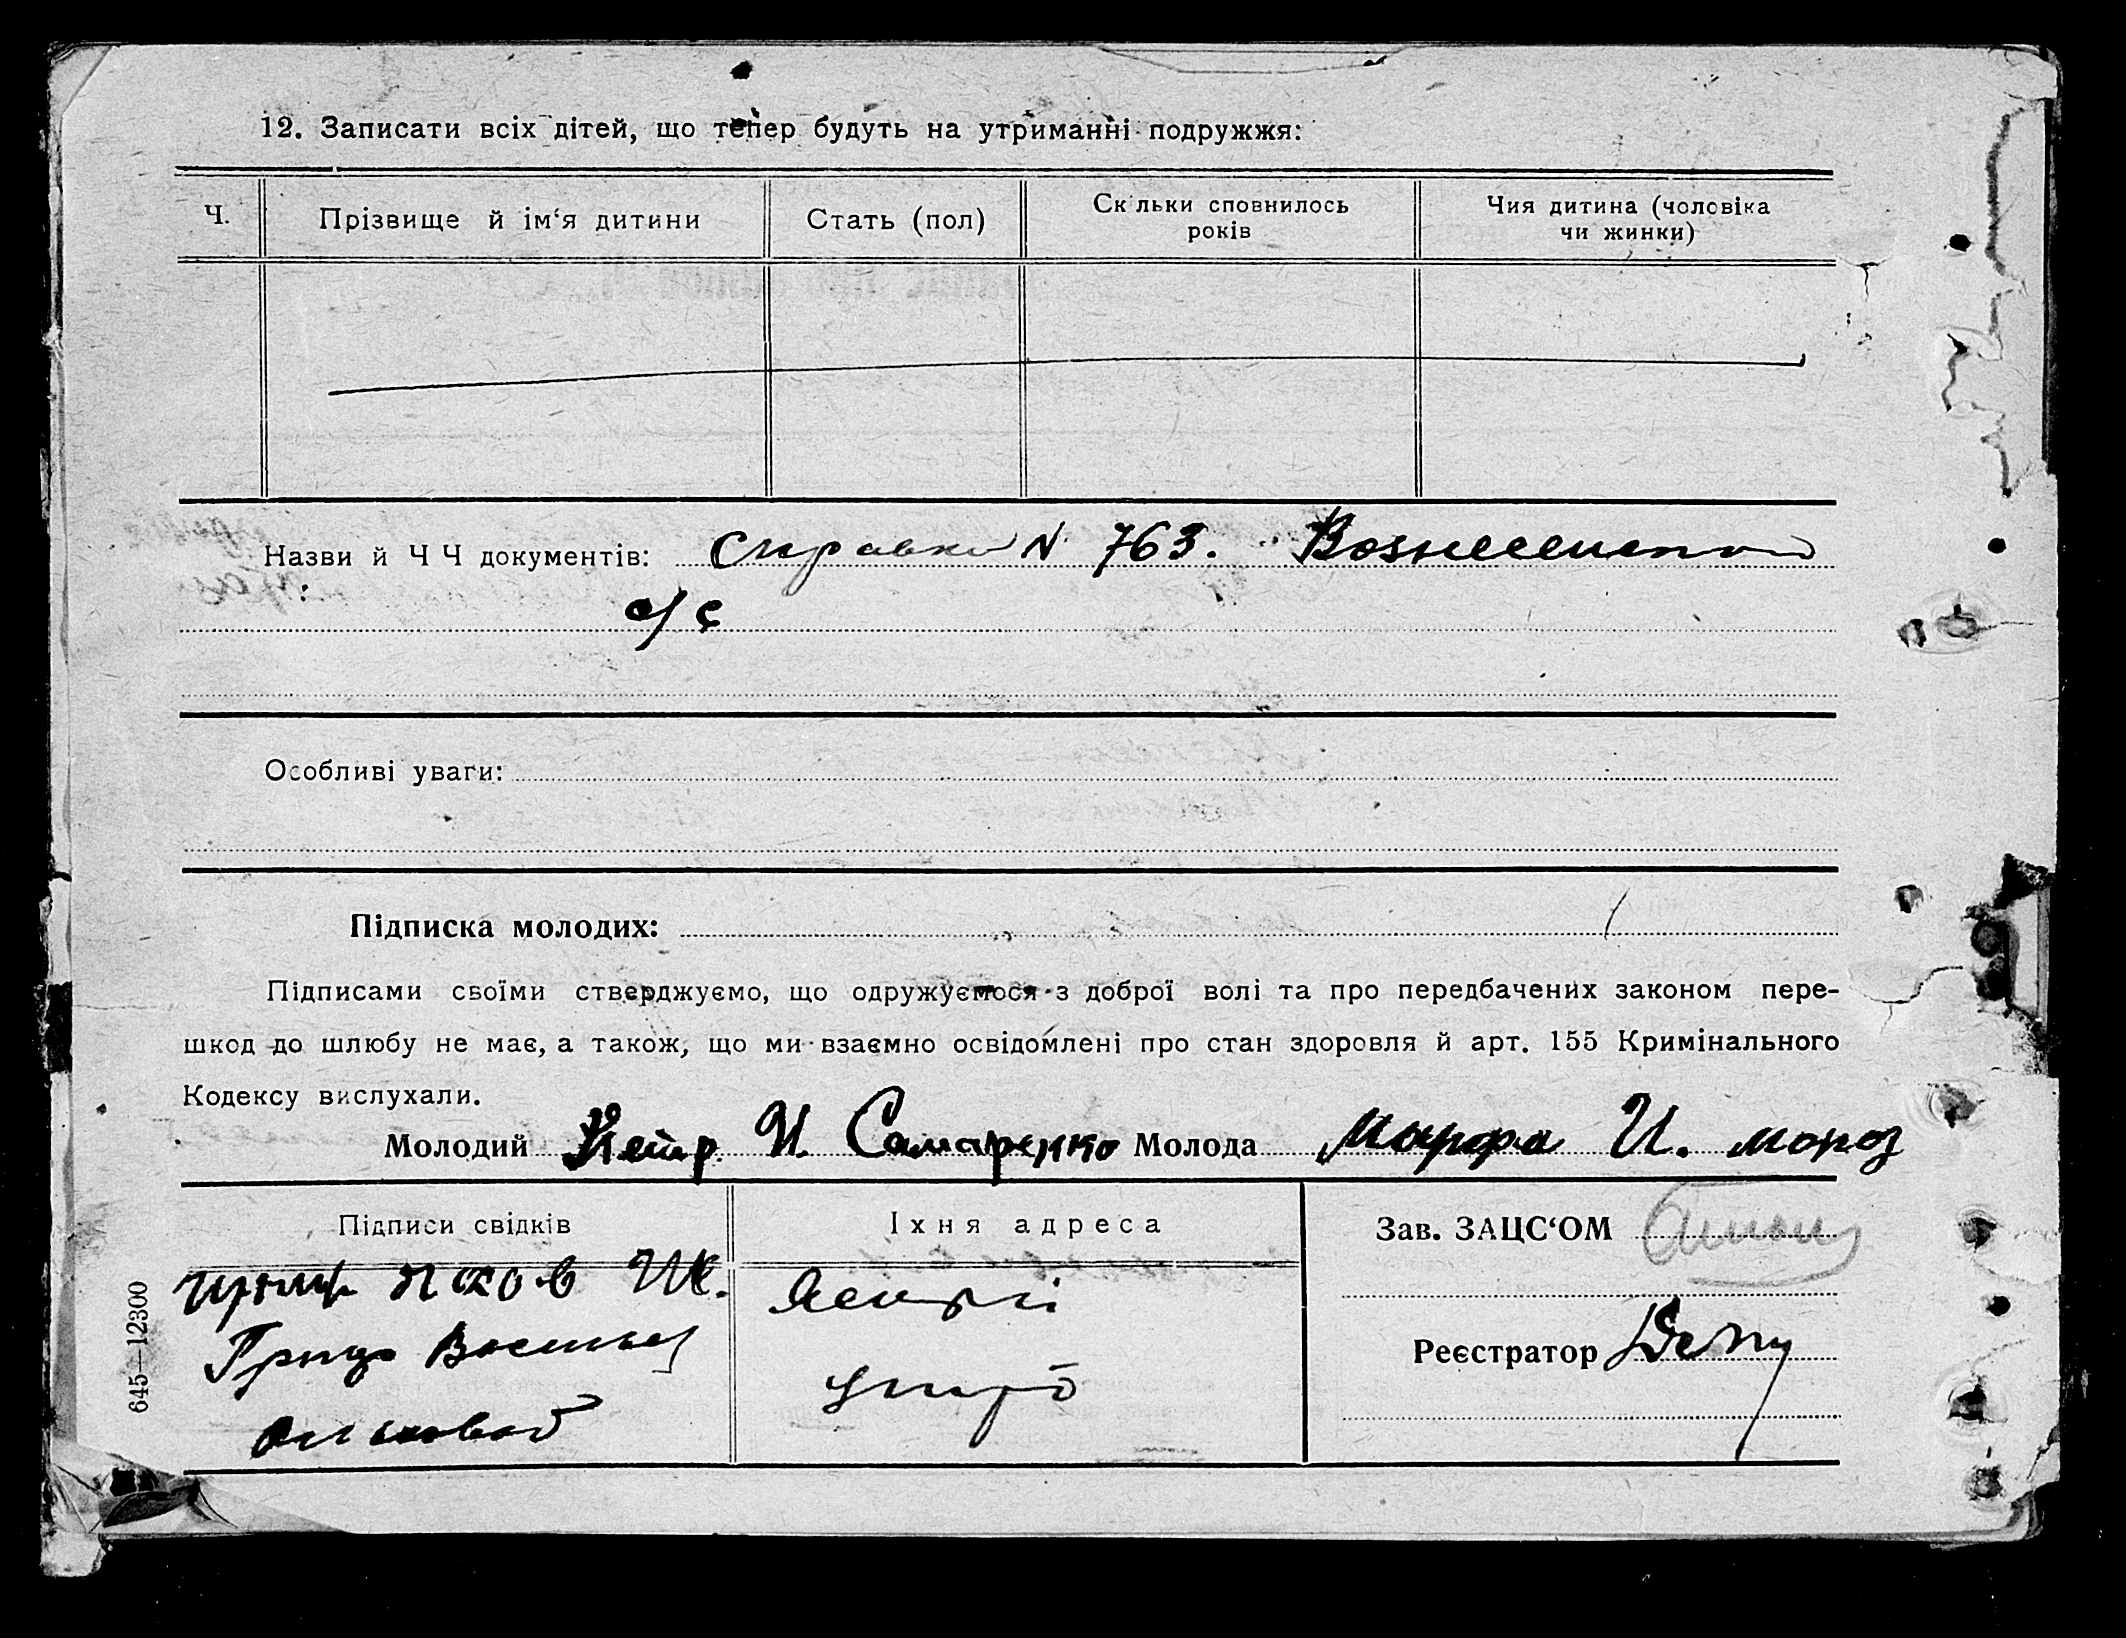 12. Записати всіх дітей, що тепер будуть на утриманні подружжя:
Ч. Прізвище й ім‘я дитини Стать (пол) Скільки сповнилось років Чия дитина (чоловіка чи жинки)
Назви й Ч Ч документів: Справка N 763. Вознесенской
с/с
Особливі уваги:
Підписка молодих:
Підписами своїми стверджуємо, що одружуємося з доброї волі та про передбачених законом пере-
шкод до шлюбу не має, а також, що ми взаємно освідомлені про стан здоровля й арт. 155 Кримінального
Кодексу вислухали.
Молодий Петр И. Самаренко Молода Марфа И. мороз
Підписи свідків Їхня адреса Зав. ЗАЦС‘ОМ
Реєстратор
645—12300